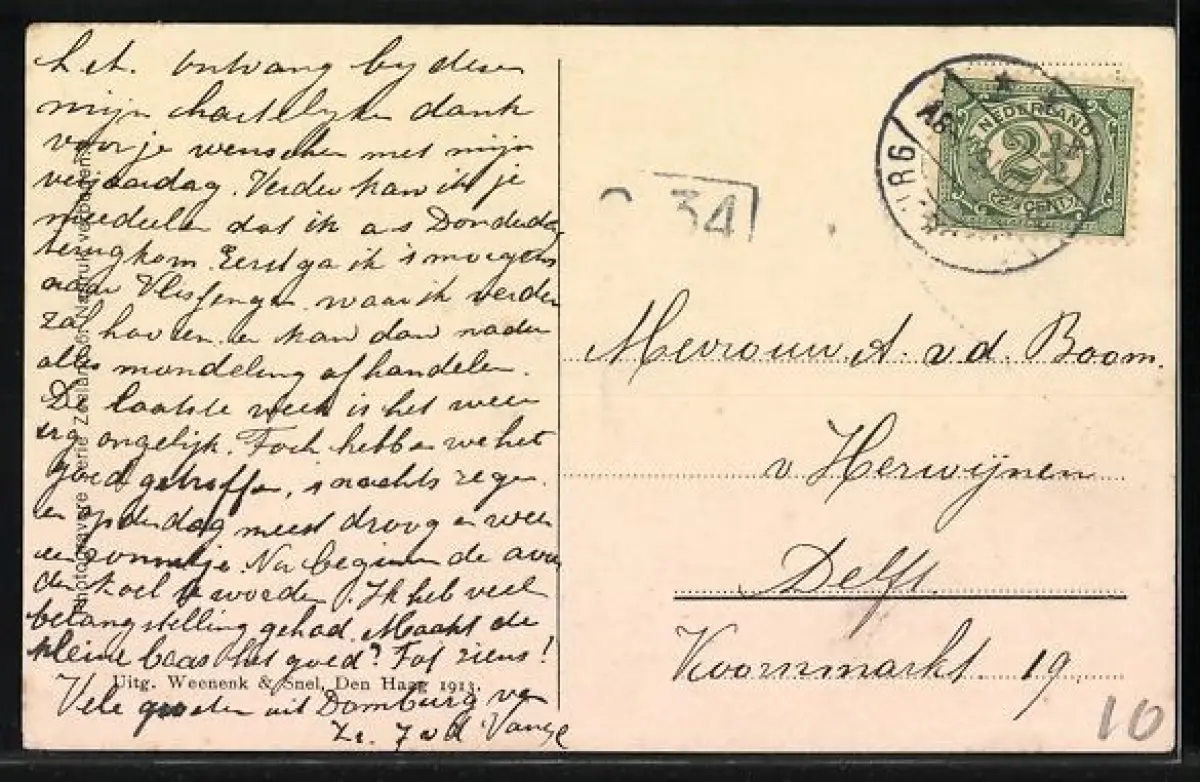 L. et. Ontvang by deze
mijn hartelyken dank
voor je wenschen met mijn
verjaardag. Verder kan ik je
meedeelen dat ik a s Donderdag
terugkom. Eerst ga ik 's morgens
naar Vlissingen waar ik verder
zal en kan dan nader
alles mondeling afhandelen.
De laatste week is het weer
erg ongelijk. Toch hebben we het
goed getroffen, s nachts regen
en op den dag meest droog en weer
een zonnetje. Nu beginnen de avon
den koel te worden. Ik heb veel
belangstelling gehad. Maakt de
kleine baas het goed? Tot ziens!
Vele groeten uit Domburg van
v d
Uitg. Weenenk & Snel, Den Haag 1913.
Photogravure Serie Zeeland Nadruk verboden.
34
NEDERLAND
2½
2½ CENT
Mevrouw A. v. d. Boom.
v Herwijnen
Delft.
Koornmarkt. 19.
10